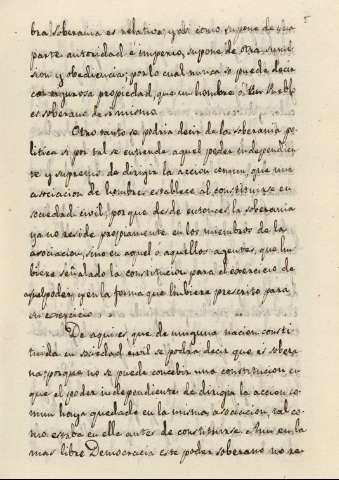 5
bra soberania es relativa; y así como supone de una
parte autoridad é imperio, supone de otra sumi-
sion y obediencia; por lo cual nunca se puede decir
con rigurosa propiedad, que un hombre ó un Pueblo
es soberano de sí mismo.
Otro tanto se podria decir de la soberania po-
litica si por tal se entiende aquel poder independien-
te y supremo de dirigir la accion comun, que una
asociacion de hombres establece al constituirse en
sociedad civil; porque desde entonces la soberania
ya no reside propiamente en los miembros de la
asociacion, sino en aquel ó aquellos agentes, que hu-
biere señalado la constitucion para el exercicio de
aquel poder, y en la forma que hubiere prescrito para
su exercicio.
De aqui es que de ninguna nacion consti-
tuida en sociedad civil se podrá decir que es sobera-
na; porque no se puede concebir una constitucion en
que el poder independiente de dirigir la accion co-
mun haya quedado en la misma asociacion, tal co-
mo estaba en ella antes de constituirse. Aun en la
mas libre Democracia este poder soberano no re-